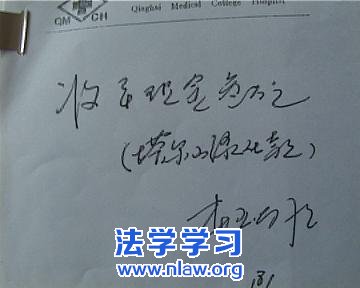 Qinghai Medical College Hospital
QM CH
收到现金叁万元
(塔尔山绿化款)
法学学习
www.nlaw.org